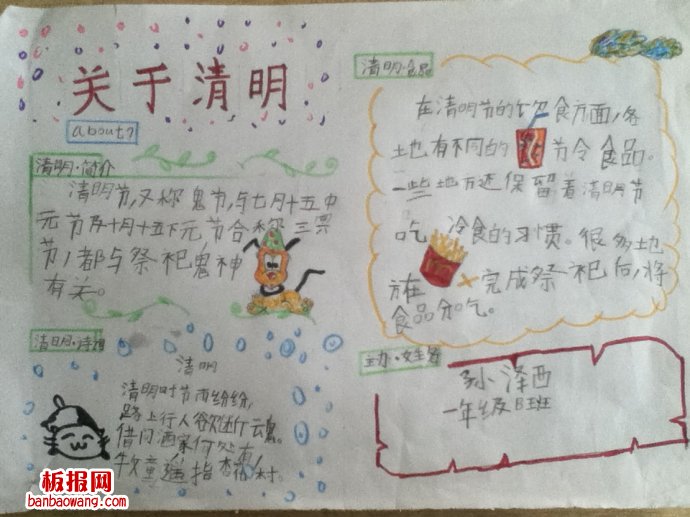 关于清明
about?
清明·简介
清明节，又称鬼节，与七月十五中
元节及十月十五下元节合称三冥
节，都与祭祀鬼神
有关。
清明·诗词
清明
清明时节雨纷纷，
路上行人欲断魂。
借问酒家何处有，
牧童遥指杏花村。
清明·食品
在清明节的饮食方面，各
地有不同的节令食品。
一些地方还保留着清明节
吃冷食的习惯。很多地
方在完成祭祀后，将
食品分吃。
主办·
孙泽西
一年级B班
板报网
banbaowang.com